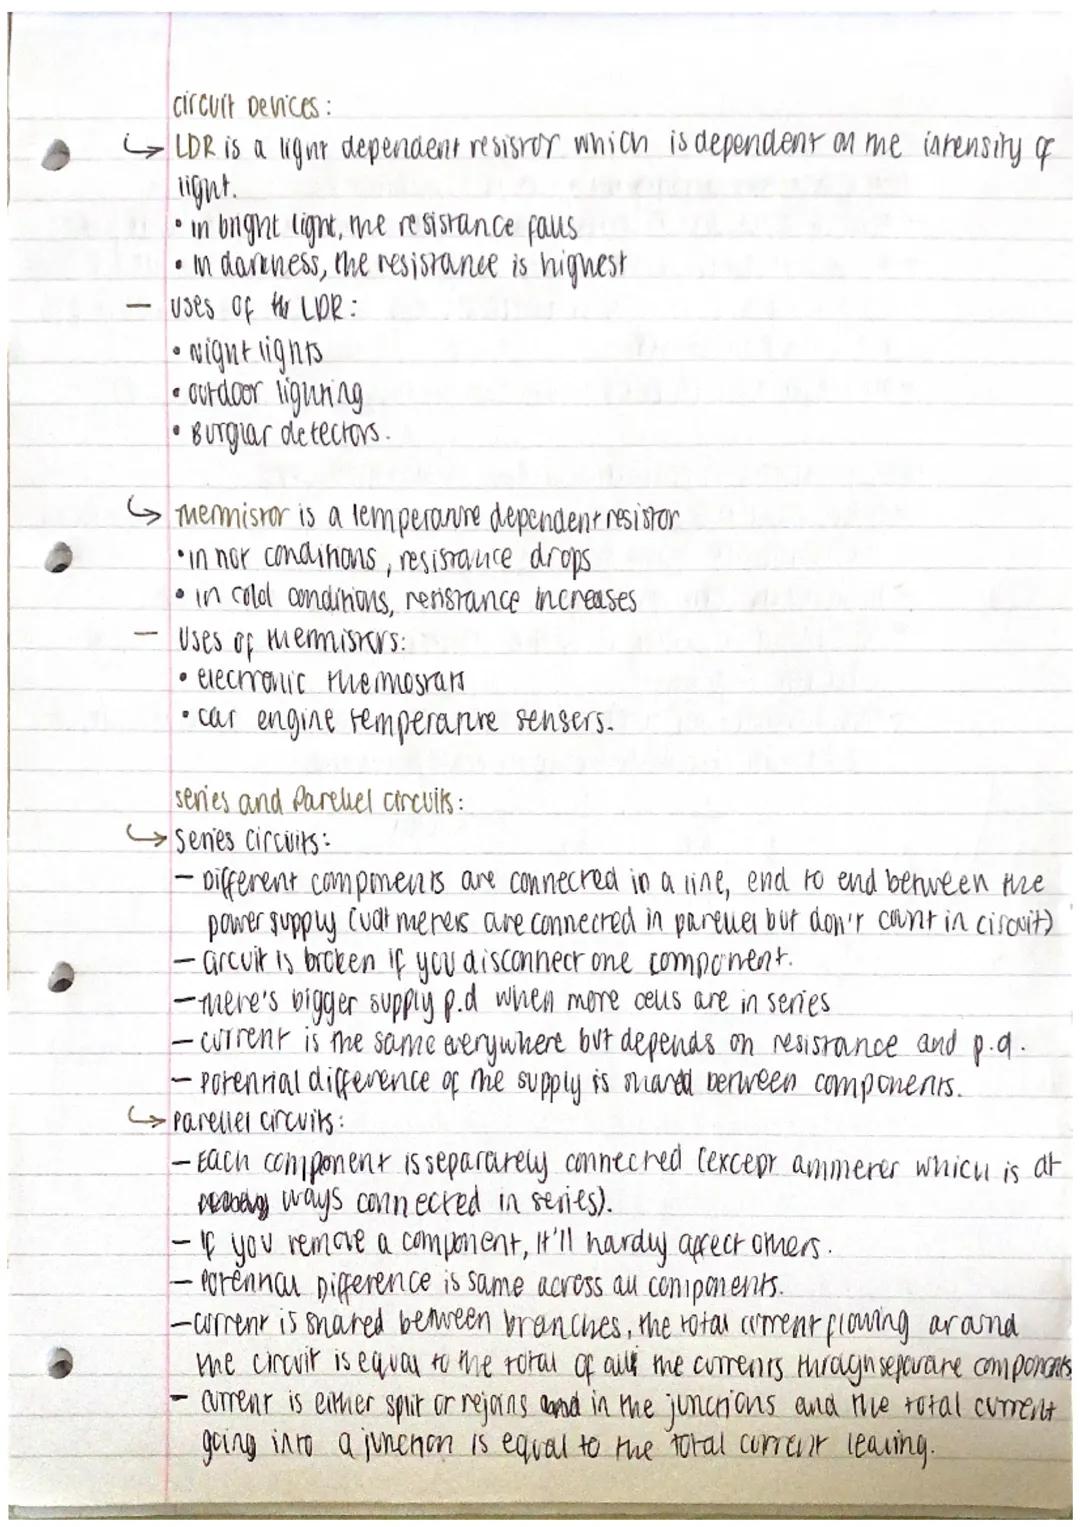 circuit Devices:
↳ LDR is a light dependent resistor which is dependent on the intensity of
light.
• in bright light, the resistance falls
• in darkness, the resistance is highest
— uses of the LDR:
• Night lights
• outdoor lighting
• Burglar detectors.
↳ Thermistor is a temperature dependent resistor
• in hot conditions, resistance drops
• in cold conditions, resistance increases
— Uses of thermistors:
• electronic thermostats
• car engine temperature sensers.
series and Parellel circuits:
↳ Series circuits:
— Different components are connected in a line, end to end between the
power supply (volt meters are connected in parellel but don't count in circuit)
— circuit is broken if you disconnect one component.
— there's bigger supply p.d when more cells are in series
— current is the same everywhere but depends on resistance and p.d.
— Potential difference of the supply is shared between components.
↳ Parellel circuits:
— Each component is separately connected (except ammeter which is al
ways connected in series).
— If you remove a component, it'll hardly affect others.
— Potential Difference is same across all components.
— current is shared between branches, the total current flowing around
the circuit is equal to the total of all the currents through separate components
— current is either split or rejoins in the junctions and the total current
going into a junction is equal to the total current leaving.